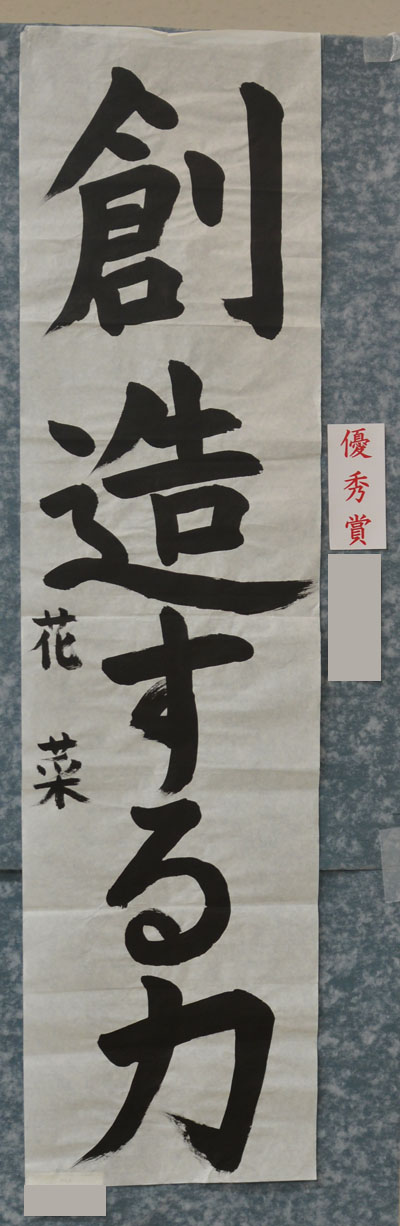 優秀賞
創造する力
花菜